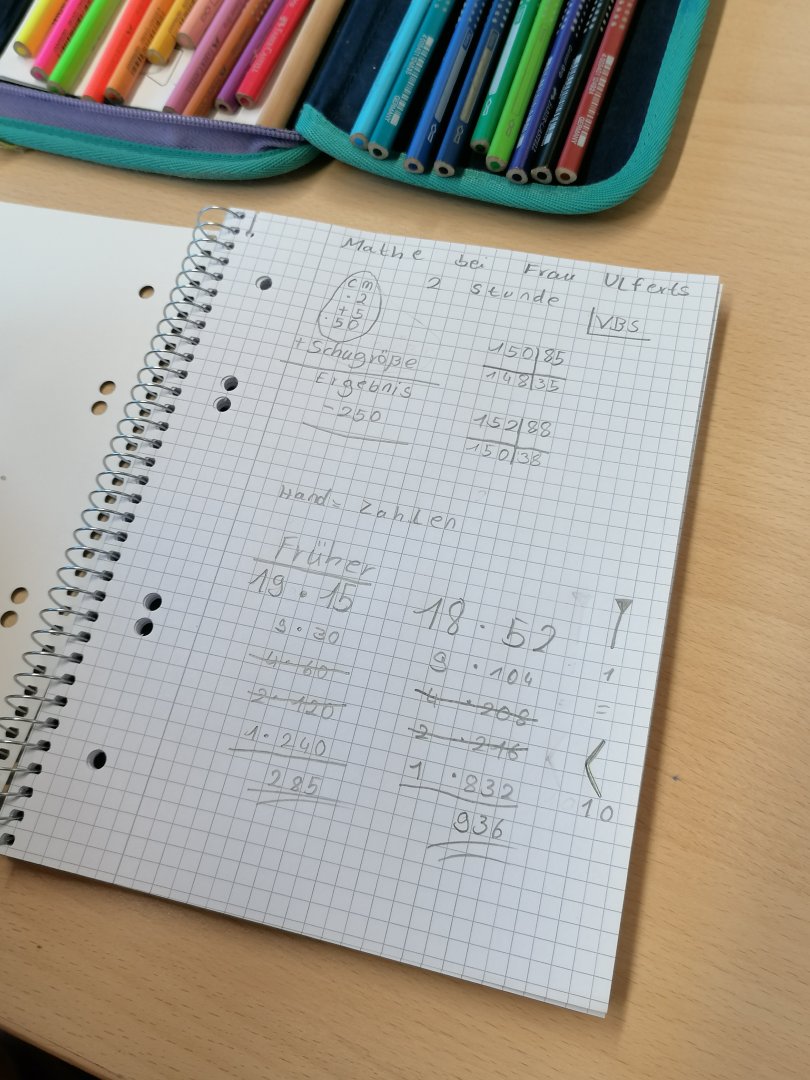 Mathe bei Frau Ulferts
2 stunde
VBS
cm
· 2
+ 5
· 50
+ Schugröße
Ergebnis
- 250
150 | 85
148 | 35
152 | 88
150 | 38
Hand = Zahlen
Früher
19 · 15
9 · 30
4 · 60
2 · 120
1 · 240
285
18 · 52
9 · 104
4 · 208
2 · 216
1 · 832
936
1
=
10